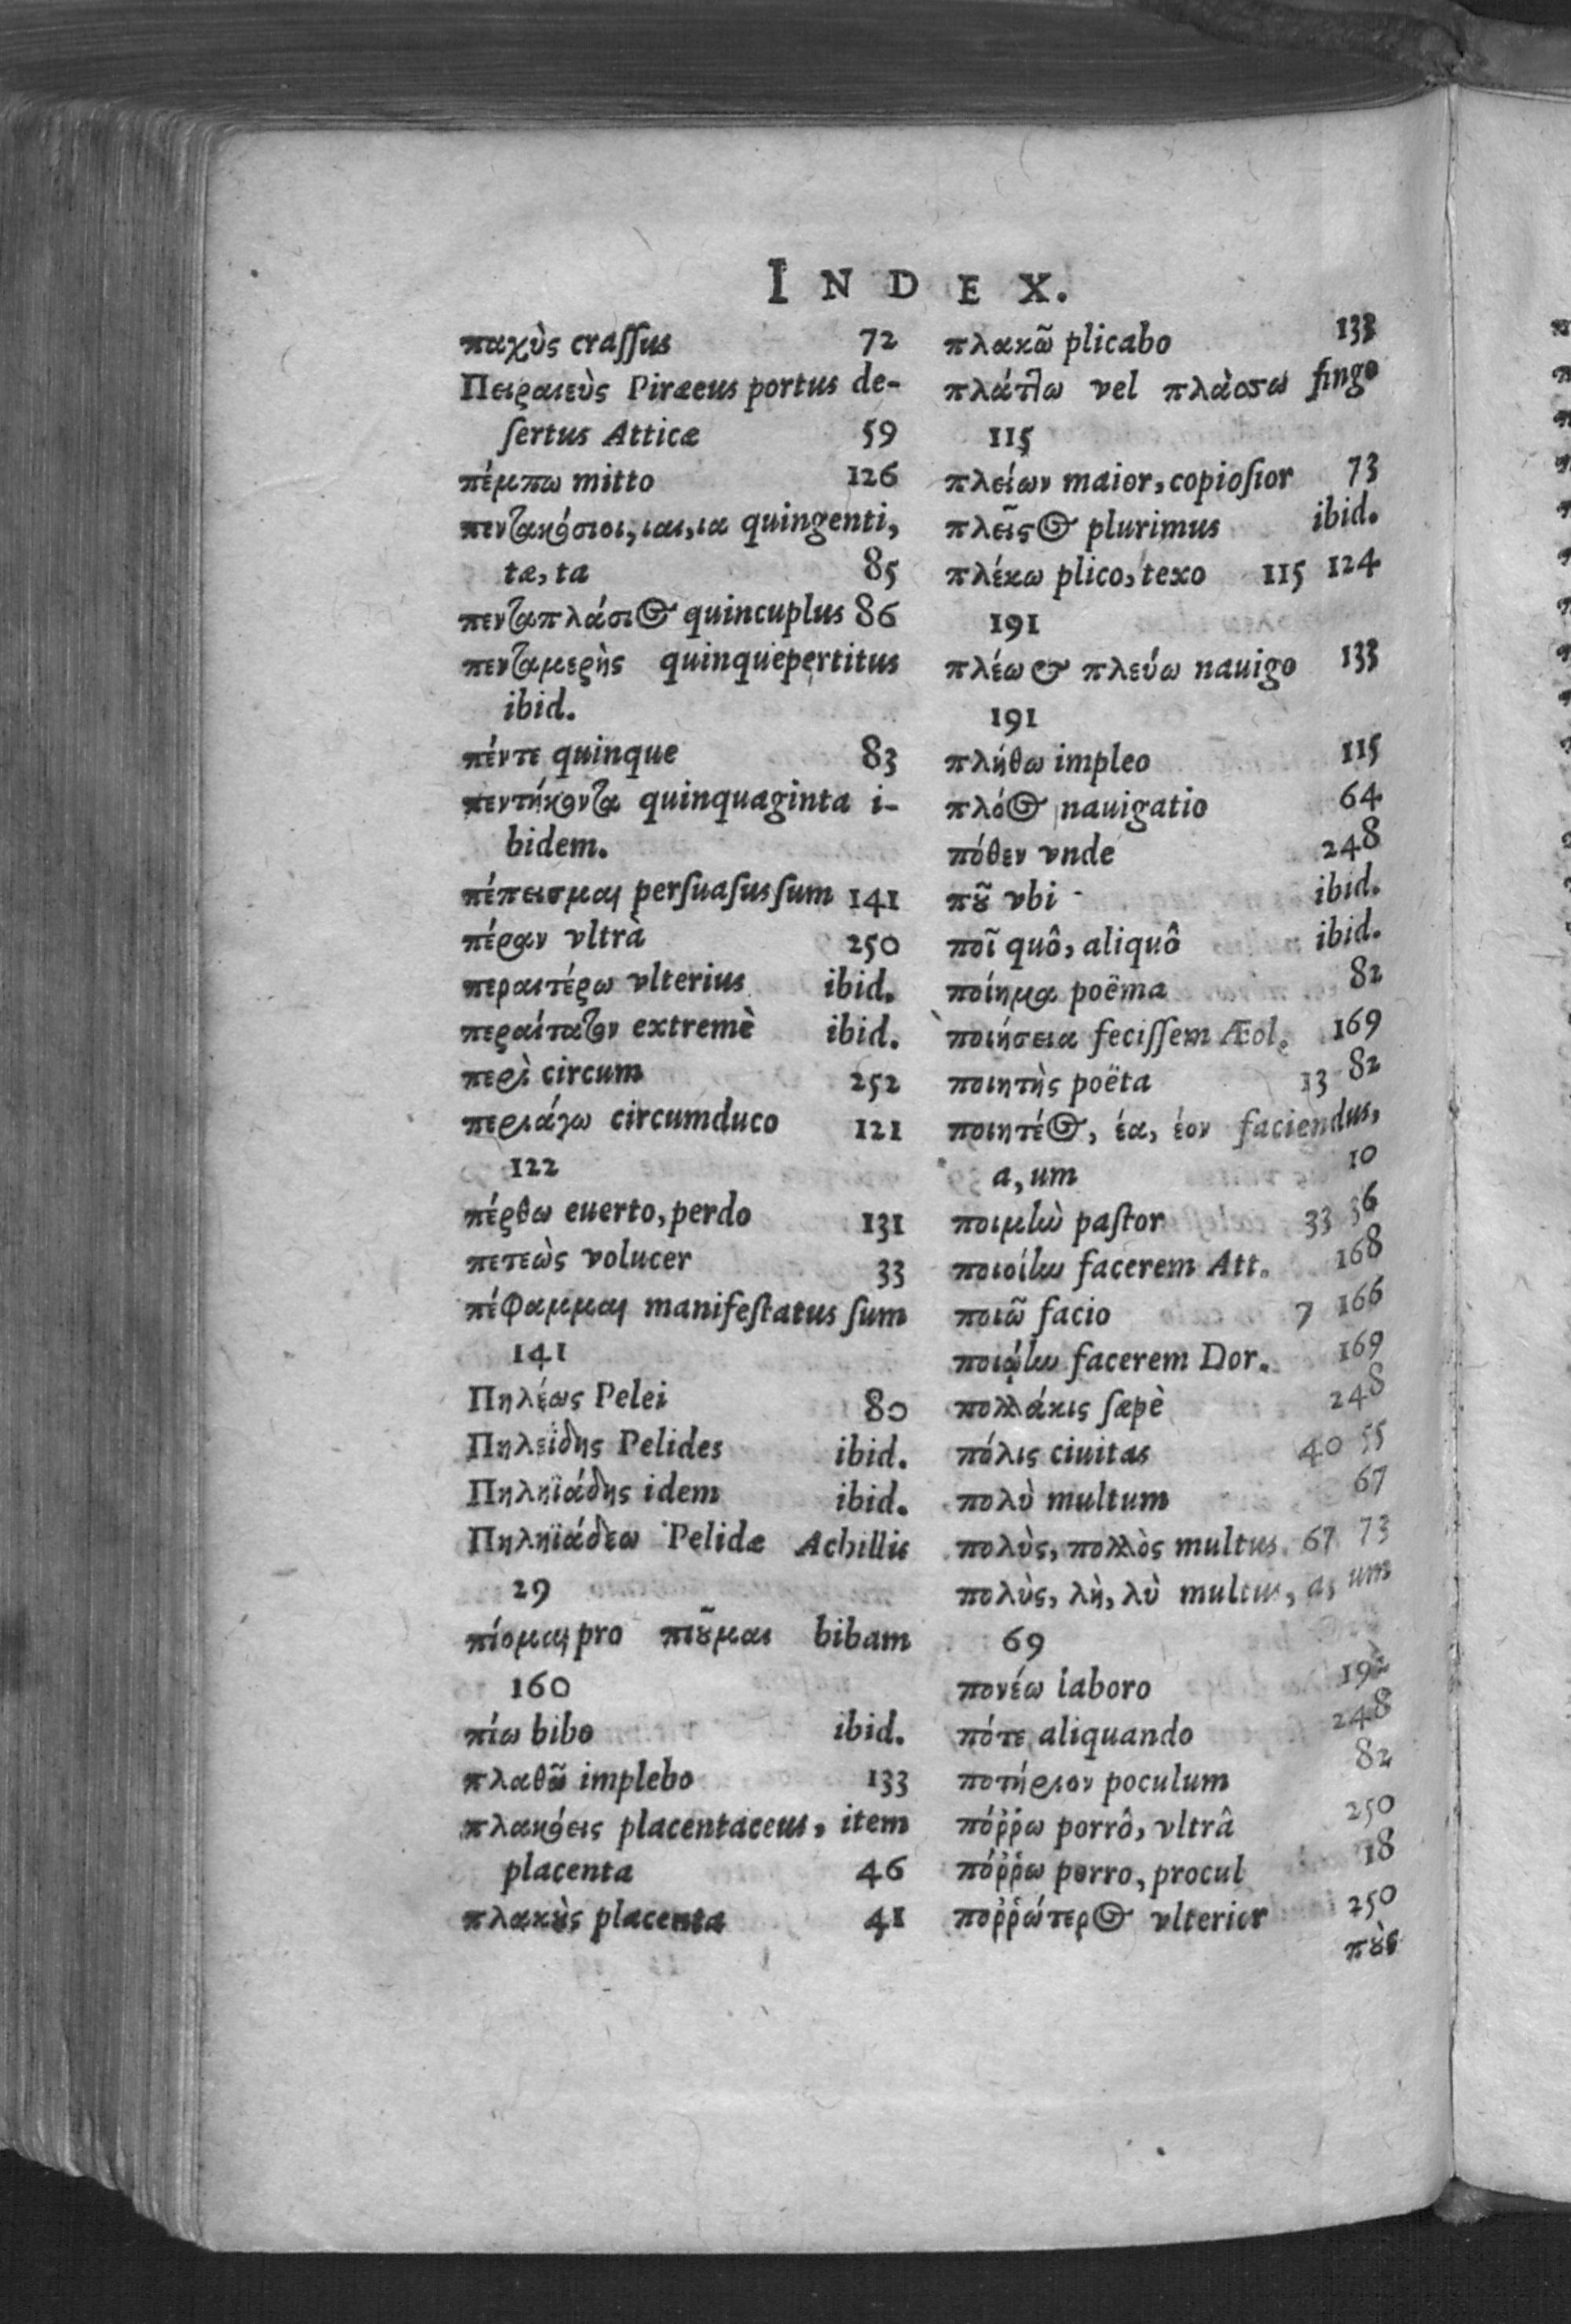 INDEX.
παχὺς crassus 72
Πειραιεὺς Piræeus portus de-
sertus Atticæ 59
πέμπω mitto 126
πεντακόσιοι, ιαι, ια quingenti,
tæ, ta 85
πενταπλάσιος quincuplus 86
πενταμερὴς quinquepertitus
ibid.
πέντε quinque 83
πεντήκοντα quinquaginta i-
bidem.
πέπεισμαι persuasus sum 141
πέραν vltrà 250
περαιτέρω vlterius ibid.
περαίτατον extremè ibid.
περὶ circum 252
περιάγω circumduco 121
122
πέρθω euerto, perdo 131
πετεὼς volucer 33
πέφαμμαι manifestatus sum
141
Πηλέως Pelei 80
Πηλείδης Pelides ibid.
Πηληϊάδης idem ibid.
Πηληϊάδεω Pelidæ Achillis
29
πίομαι pro πιοῦμαι bibam
160
πίω bibo ibid.
πλαθῶ implebo 133
πλακόεις placentaceus, item
placenta 46
πλακοὺς placenta 41
πλακῶ plicabo 133
πλάττω vel πλάσσω fingo
115
πλείων maior, copiosior 73
πλεῖςος plurimus ibid.
πλέκω plico, texo 115 124
191
πλέω & πλεύω nauigo 133
191
πλήθω impleo 115
πλόος nauigatio 64
πόθεν vnde 248
ποῦ vbi ibid.
ποῖ quô, aliquô ibid.
ποίημα poëma 82
ποιήσεια fecissem Æol. 169
ποιητὴς poëta 13 82
ποιητέος, έα, έον faciendus,
a, um 10
ποιμὴν pastor 33 36
ποιοίην facerem Att. 168
ποιῶ facio 7 166
ποιῴην facerem Dor. 169
πολλάκις sæpè 248
πόλις ciuitas 40 55
πολὺ multum 67
πολὺς, πολλὸς multus 67 73
πολὺς, λὴ, λὺ multus, a, um
69
πονέω laboro 192
πότε aliquando 248
ποτήριον poculum 82
πόῤῥω porrô, vltrâ 250
πόῤῥω porro, procul 18
ποῤῥώτερος vlterior 250
ποὺς